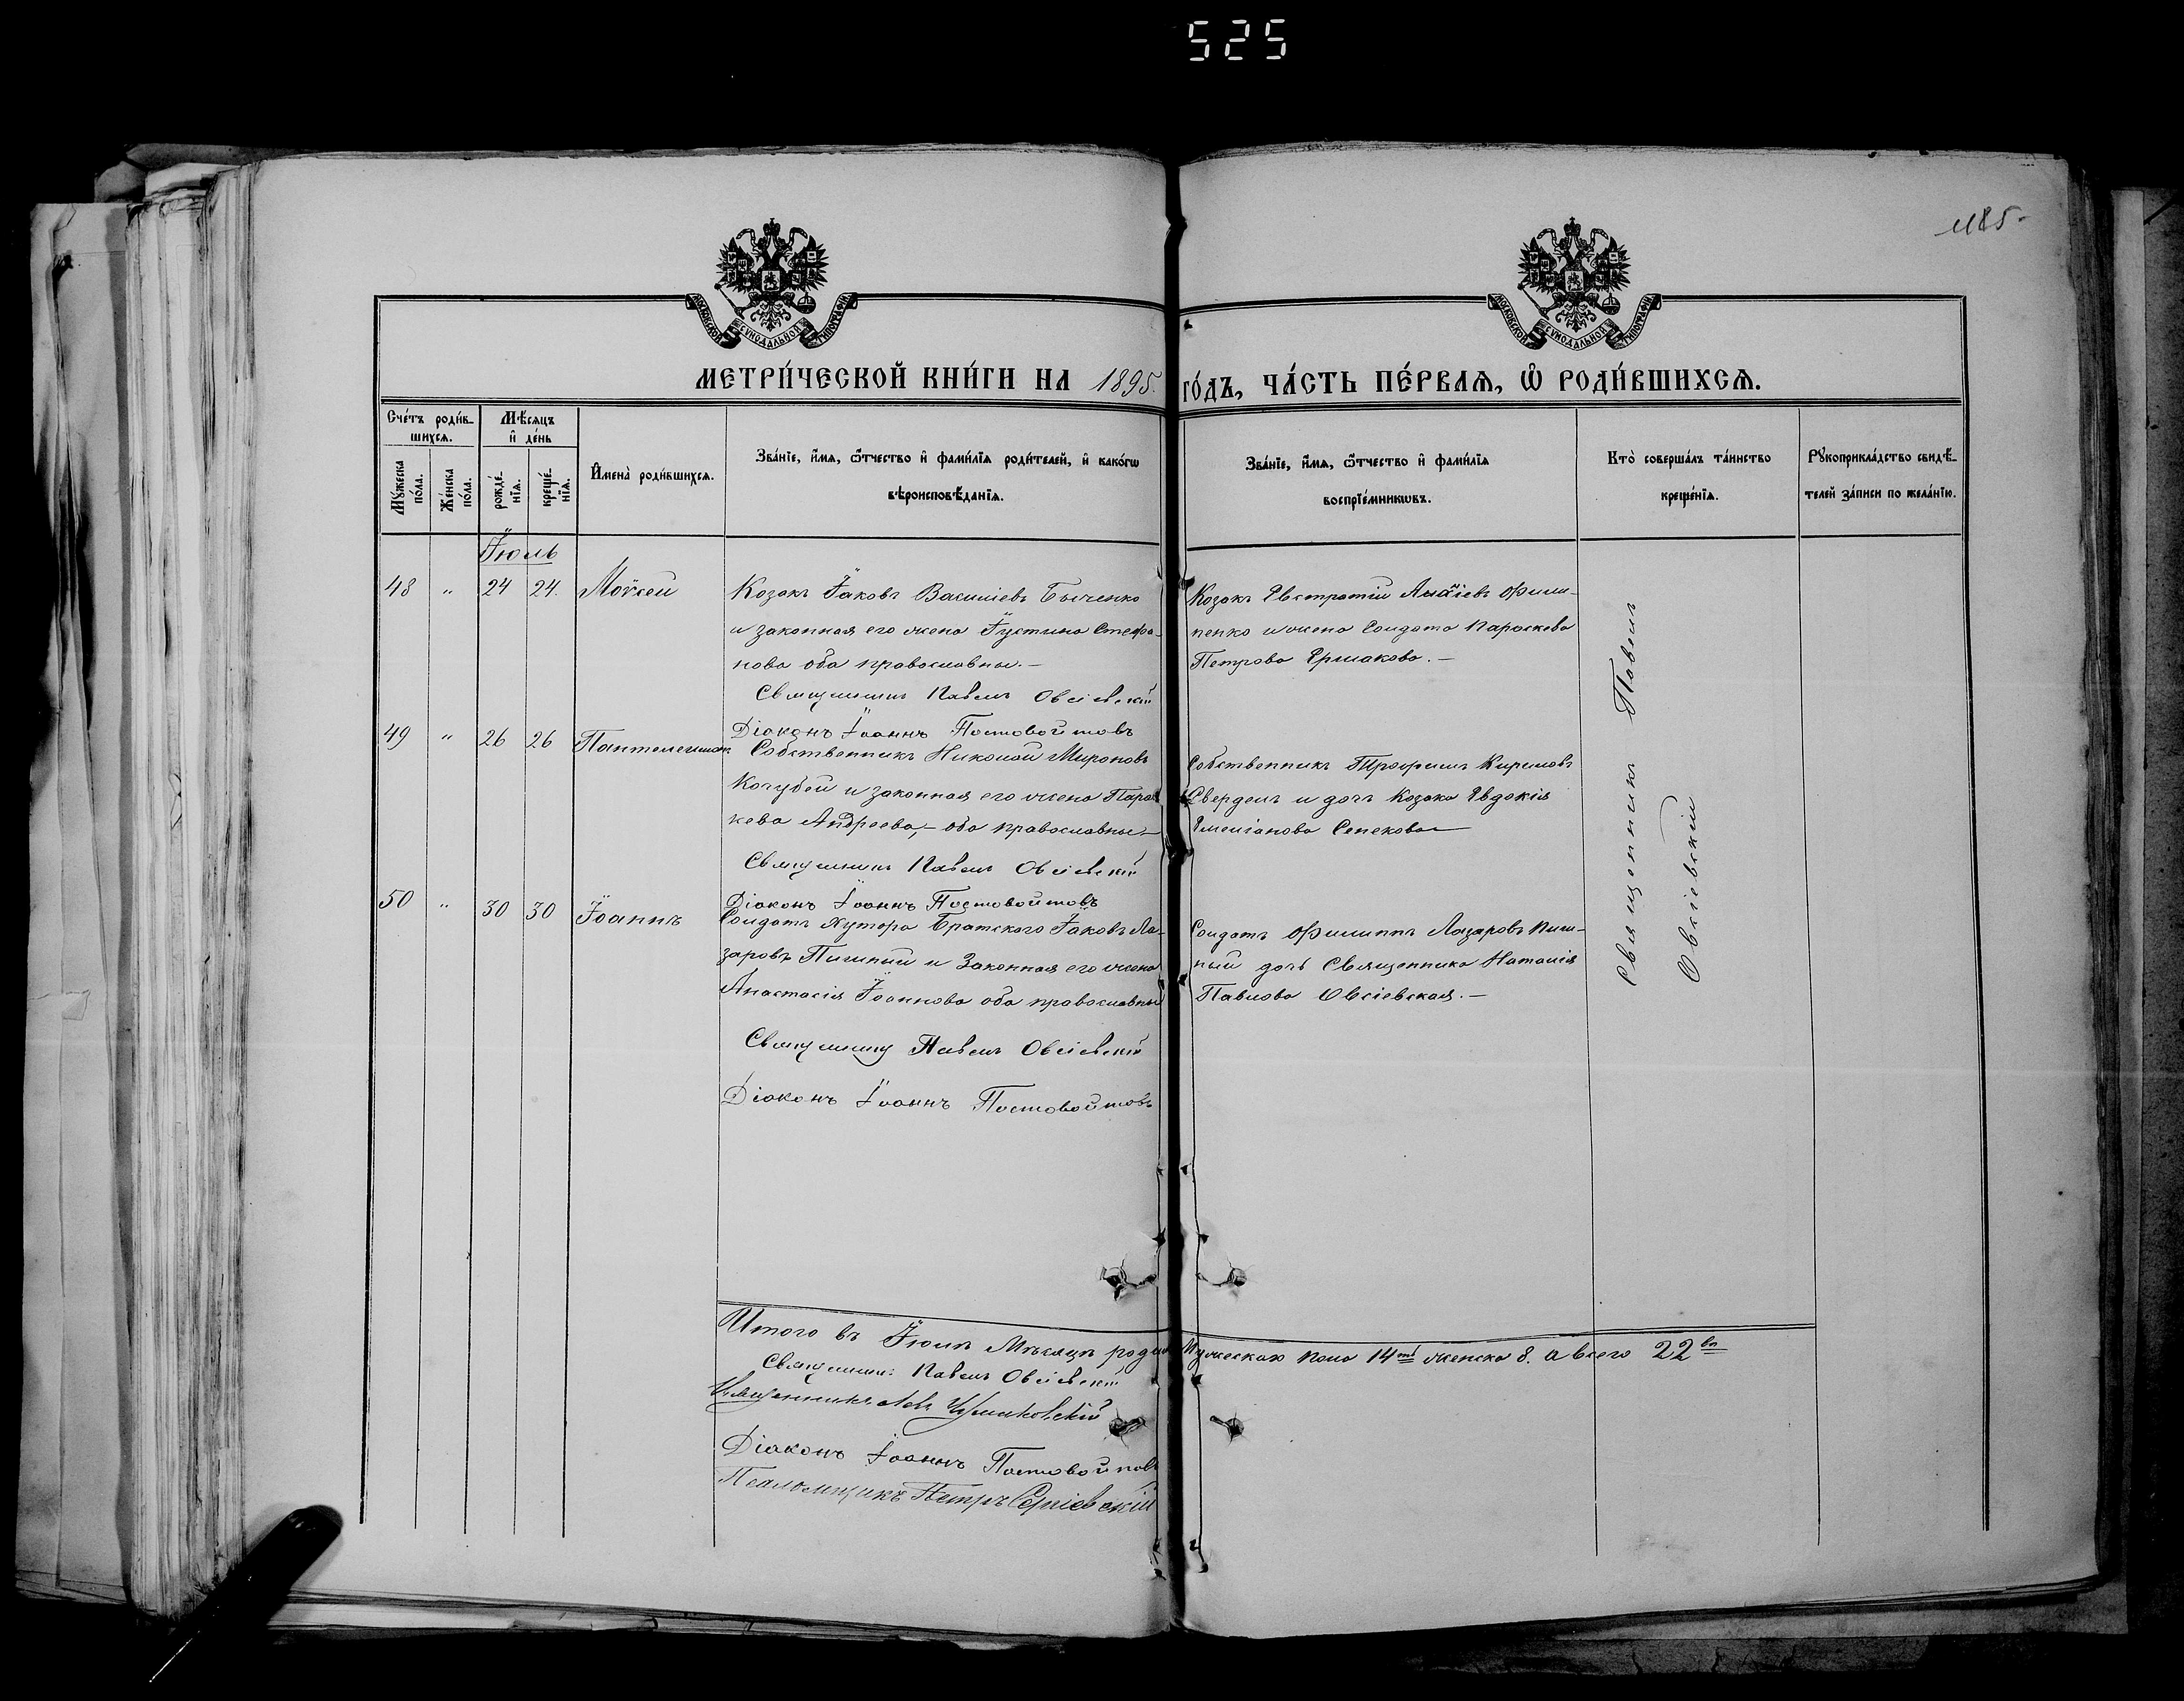 525
185
МОСКОВСКОЙ СУНОДАЛЬНОЙ ТИПОГРАФІИ
МОСКОВСКОЙ СУНОДАЛЬНОЙ ТИПОГРАФІИ
МЕТРИ́ЧЕСКОЙ КНИ́ГИ НА 1895. ГО́ДЪ, ЧА́СТЬ ПЕ́РВАѦ, Ѡ РОДИ́ВШИХСѦ.
Сче́тъ роди́в-
шихсѧ.
Мꙋ́жеска по́ла.
Же́нска по́ла.
Мѣ́сѧцъ
и҆ де́нь
рожде́-
нїѧ.
креще́-
нїѧ.
И҆мена̀ роди́вшихсѧ.
Зва́нїе, и҆́мѧ, ѻ҆́тчество и҆ фами́лїѧ роди́телей, и҆ како́гѡ
вѣроисповѣ́данїѧ.
Зва́нїе, и҆́мѧ, ѻ҆́тчество и҆ фами́лїѧ
воспрїе́мникѡвъ.
Кто̀ соверша́лъ та́инство
креще́нїѧ.
Рꙋкоприкла́дство свидѣ́-
телей за́писи по жела́нїю.
Іюль
48 " 24 24. Моѵсей
Козакъ Іаковъ Василіевъ Быченко
и законная его жена Іустина Стефа-
нова оба православны.—
Священникъ Павелъ Овсіевскій
Діаконъ Іоаннъ Постовойтовъ
Козакъ Евстратій Филип-
пенко и жена Солдата Параскева
Петрова Ермакова.—
49 " 26 26 Пантелеимонъ
Собственникъ Николай Мироновъ
Кочубей и законная его жена Парас
кева Андреева,— оба православны—
Священникъ Павелъ Овсіевскій
Діаконъ Іоаннъ Постовойтовъ
Собственникъ Трофимъ Кириловъ
Сверделъ и дочь Козака Евдокія
Емеліанова Сенекова—
50 " 30 30 Іоаннъ
Солдатъ Хутора Братскаго Іаковъ Ла-
заровъ Пишный и Законная его жена
Анастасія Іоаннова оба православны
Священникъ Павелъ Овсіевскій
Діаконъ Іоаннъ Постовойтовъ
Солдатъ Филиппъ Лазаровъ Пиш-
ный дочь Священника Наталія
Павлова Овсіевская.—
Священникъ Павелъ
Овсіевскій
Итого въ Іюлѣ Мѣсяцѣ родил Мужескаго пола 14ть женска 8. а всего 22ва
Священникъ Павелъ Овсіевскій
Священникъ Левъ
Діаконъ Іоаннъ Постовойтовъ
Псаломщикъ Петръ Сергіевскій